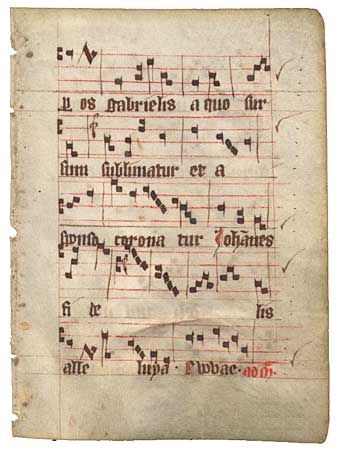 os gabrielis a quo sur
sum sublimatur et a
sponso corona tur Johanes
fi de lis
alle luya. Evovae. ad